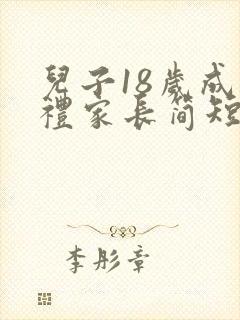 兒子18歲成
禮家長简短
李彤章